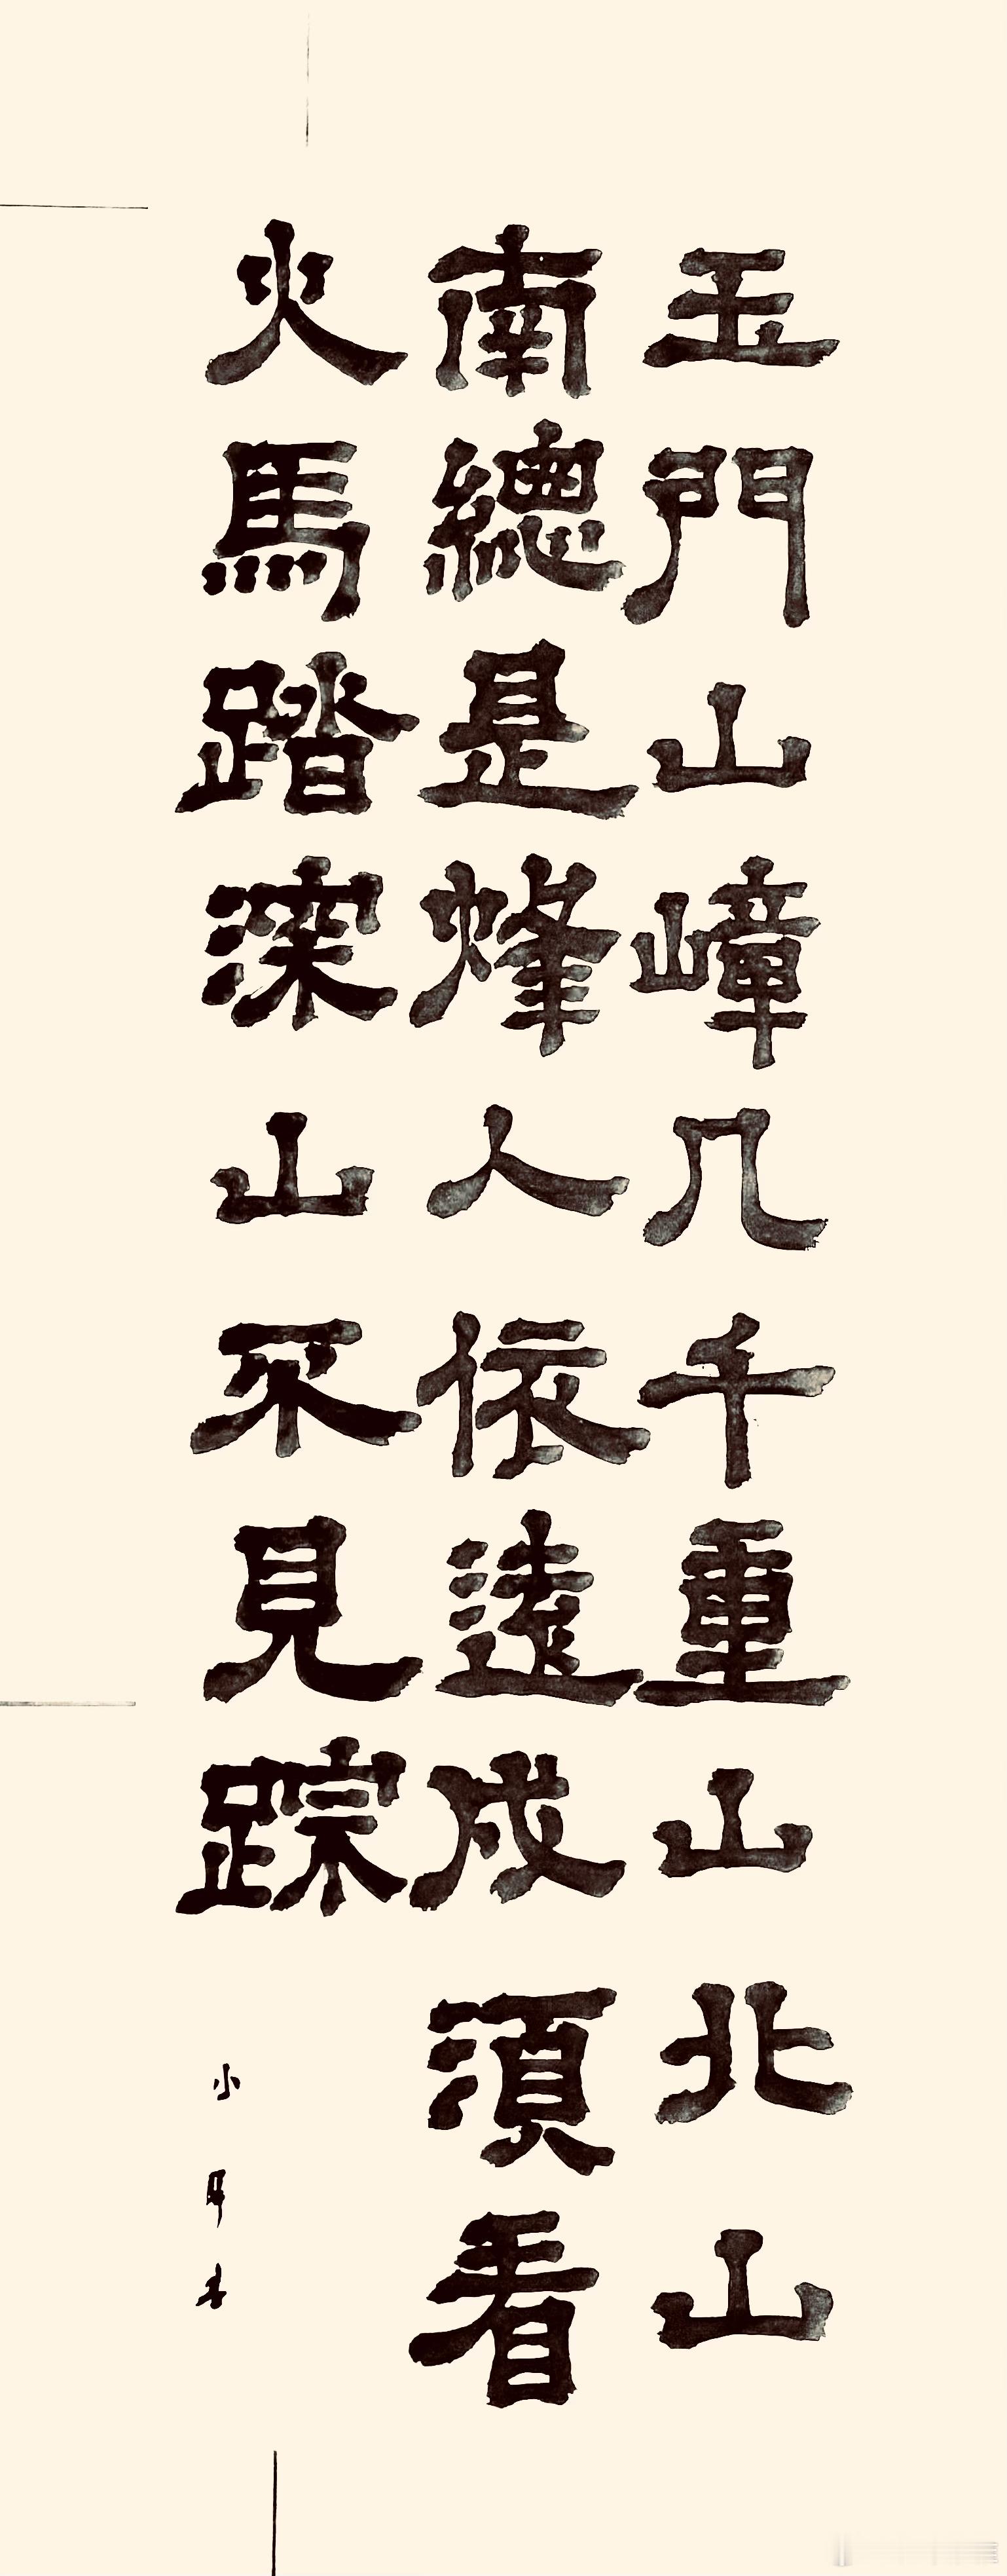 玉門山嶂几千重山北山
南總是烽人依遠戍須看
火馬踏深山不見踪
小